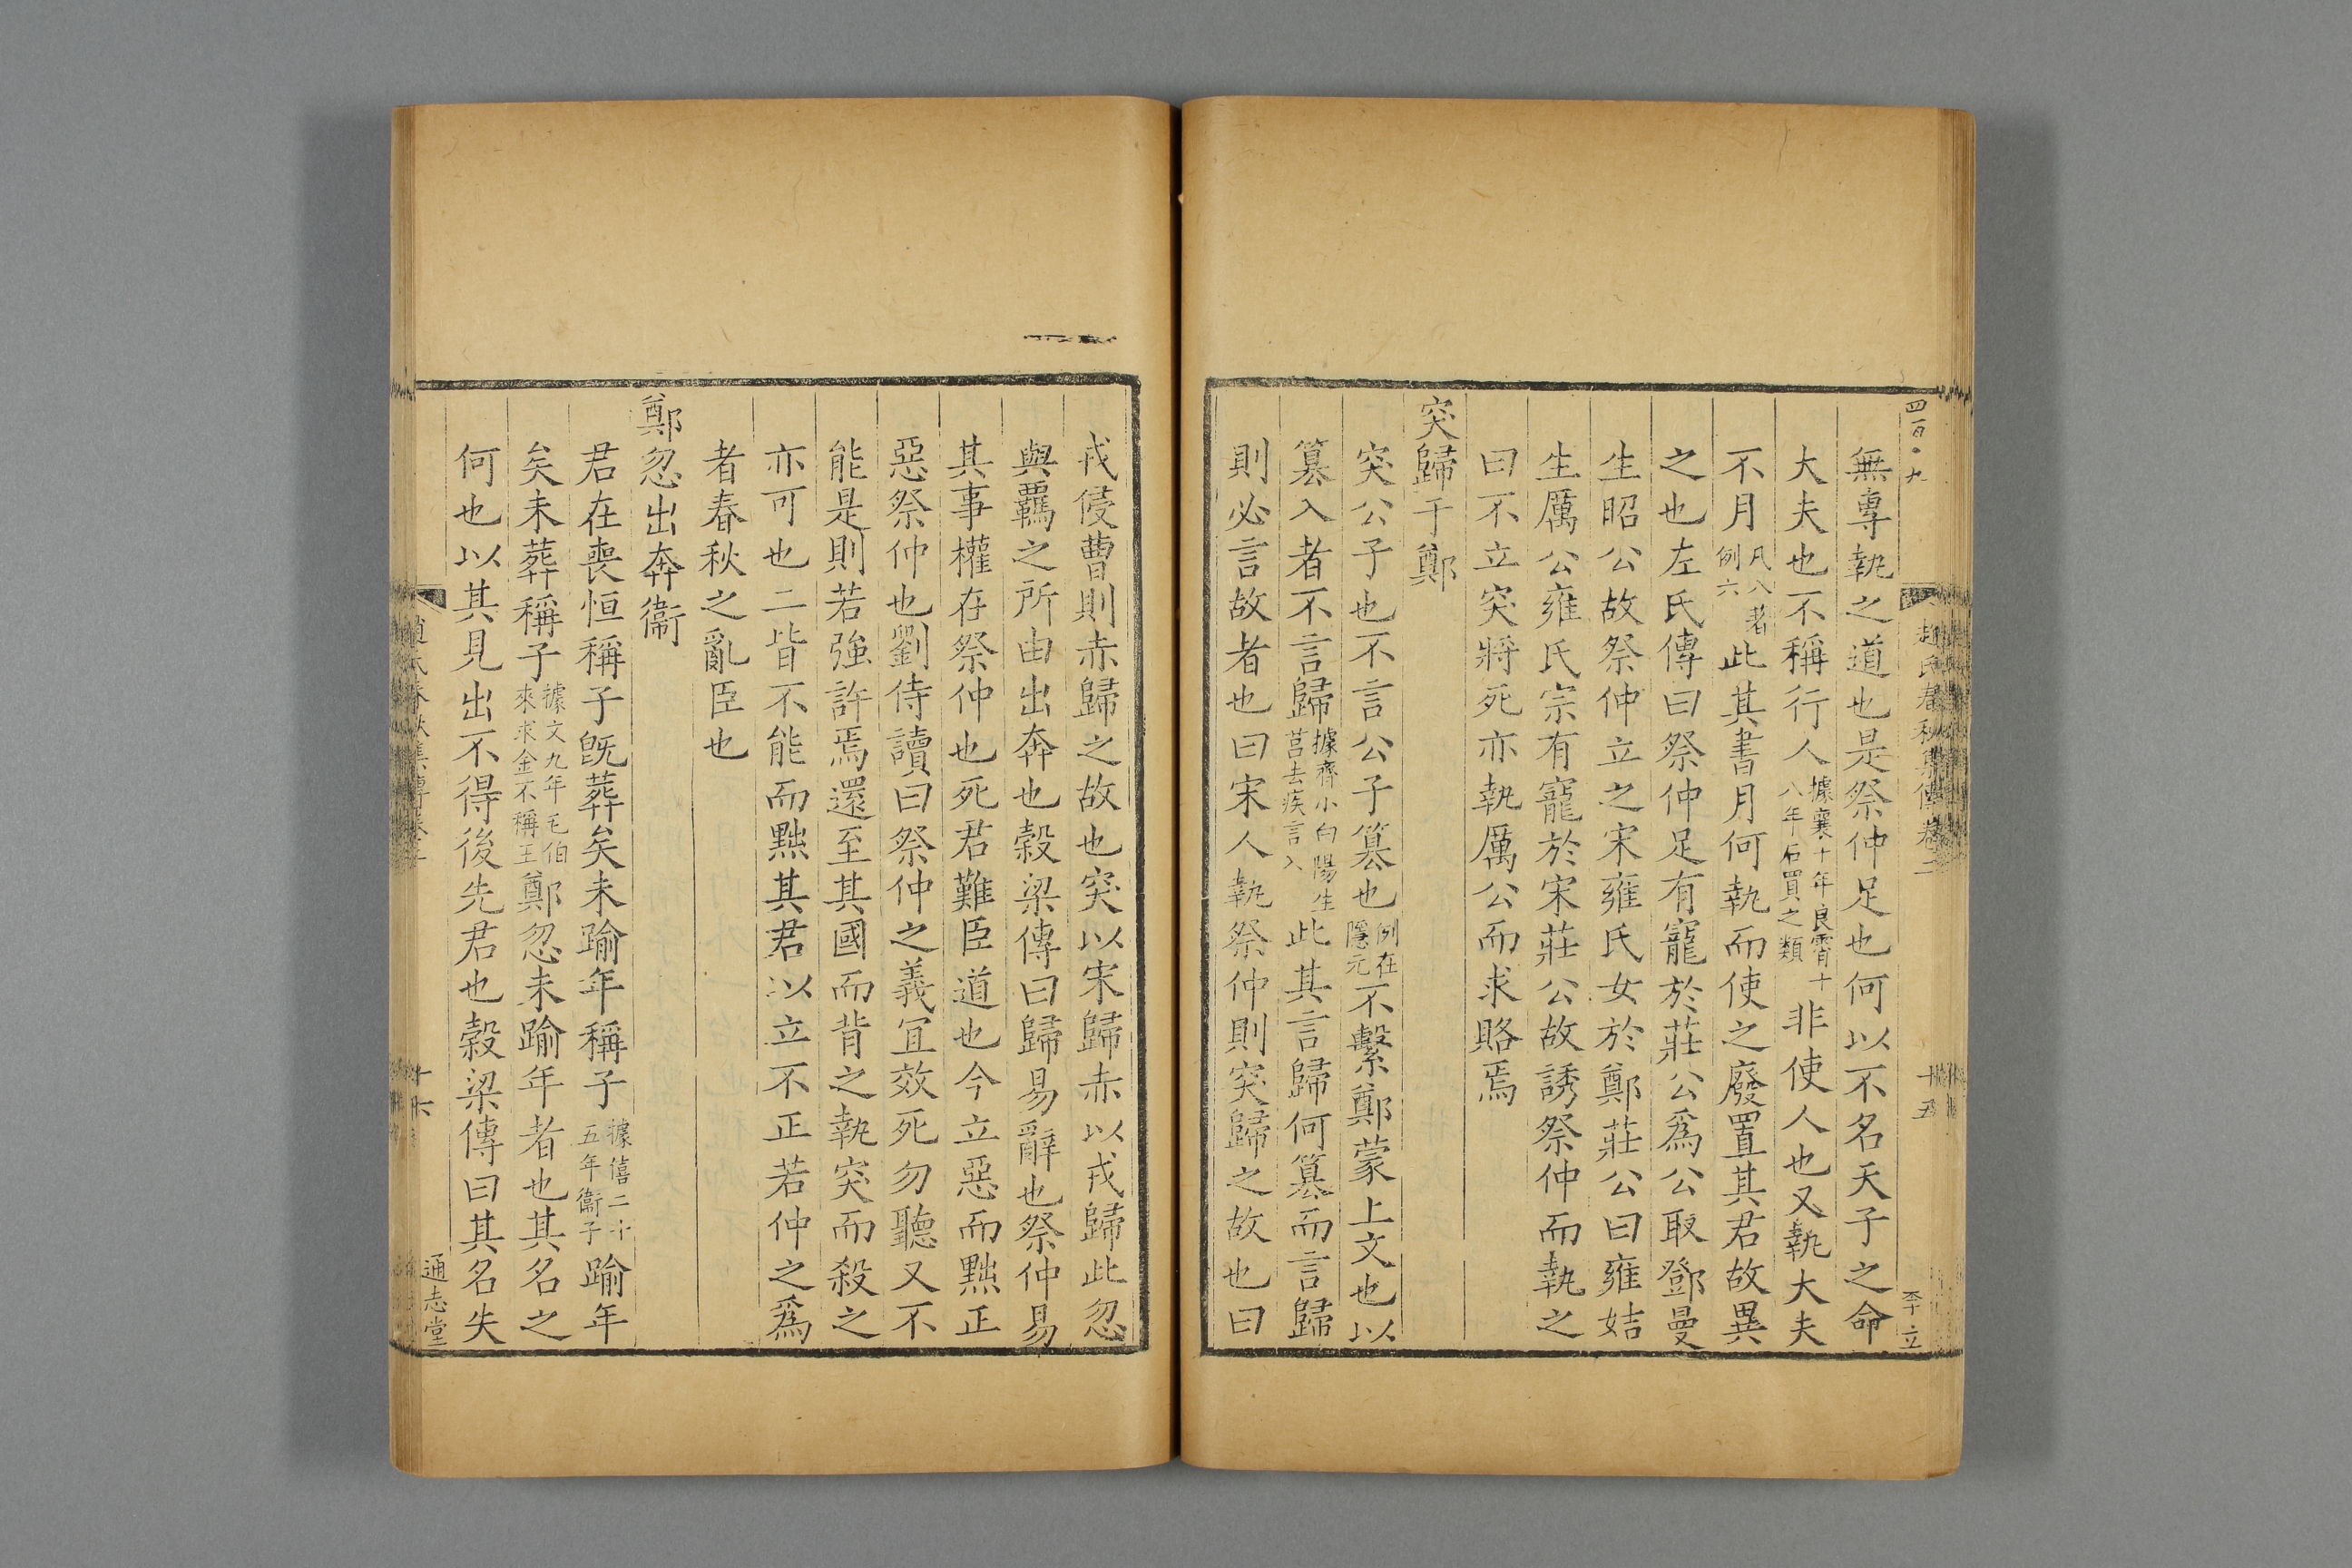 四百〇九
趙氏春秋集傳卷二
十五
李立
無專執之道也是祭仲足也何以不名天子之命
大夫也不稱行人據襄十年良霄十八年石買之類非使人也又執大夫
不月凡八著例六此其書月何執而使之廢置其君故異
之也左氏傳曰祭仲足有寵於莊公爲公取鄧曼
生昭公故祭仲立之宋雍氏女於鄭莊公曰雍姞
生厲公雍氏宗有寵於宋莊公故誘祭仲而執之
曰不立突將死亦執厲公而求賂焉
突歸于鄭
突公子也不言公子篡也例在隱元不繫鄭蒙上文也以
篡入者不言歸據齊小白陽生莒去疾言入此其言歸何篡而言歸
則必言故者也曰宋人執祭仲則突歸之故也曰
戎侵曹則赤歸之故也突以宋歸赤以戎歸此忽
與羈之所由出奔也穀梁傳曰歸易辭也祭仲易
其事權在祭仲也死君難臣道也今立惡而黜正
惡祭仲也劉侍讀曰祭仲之義宜效死勿聽又不
能是則若強許焉還至其國而背之執突而殺之
亦可也二皆不能而黜其君以立不正若仲之爲
者春秋之亂臣也
鄭忽出奔衞
君在喪恒稱子旣葬矣未踰年稱子據僖二十五年衞子踰年
矣未葬稱子據文九年毛伯來求金不稱王鄭忽未踰年者也其名之
何也以其見出不得後先君也穀梁傳曰其名失
趙氏春秋集傳卷二
十六
通志堂